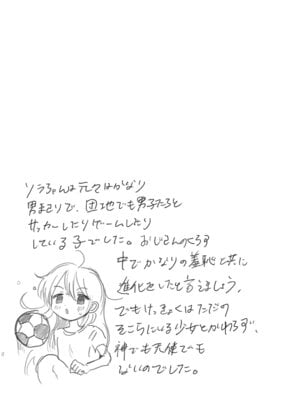 ソラちゃんは元々はかなり
男まさりで、団地でも男子たちと
サッカーしたりゲームしたり
している子でした。おじさんとくらす
中でかなりの羞恥と共に
進化をしたと言えましょう、
でもけっきょくはただの
そこらにいる少女とかわらず、
神でも天使でも
ないのでした。